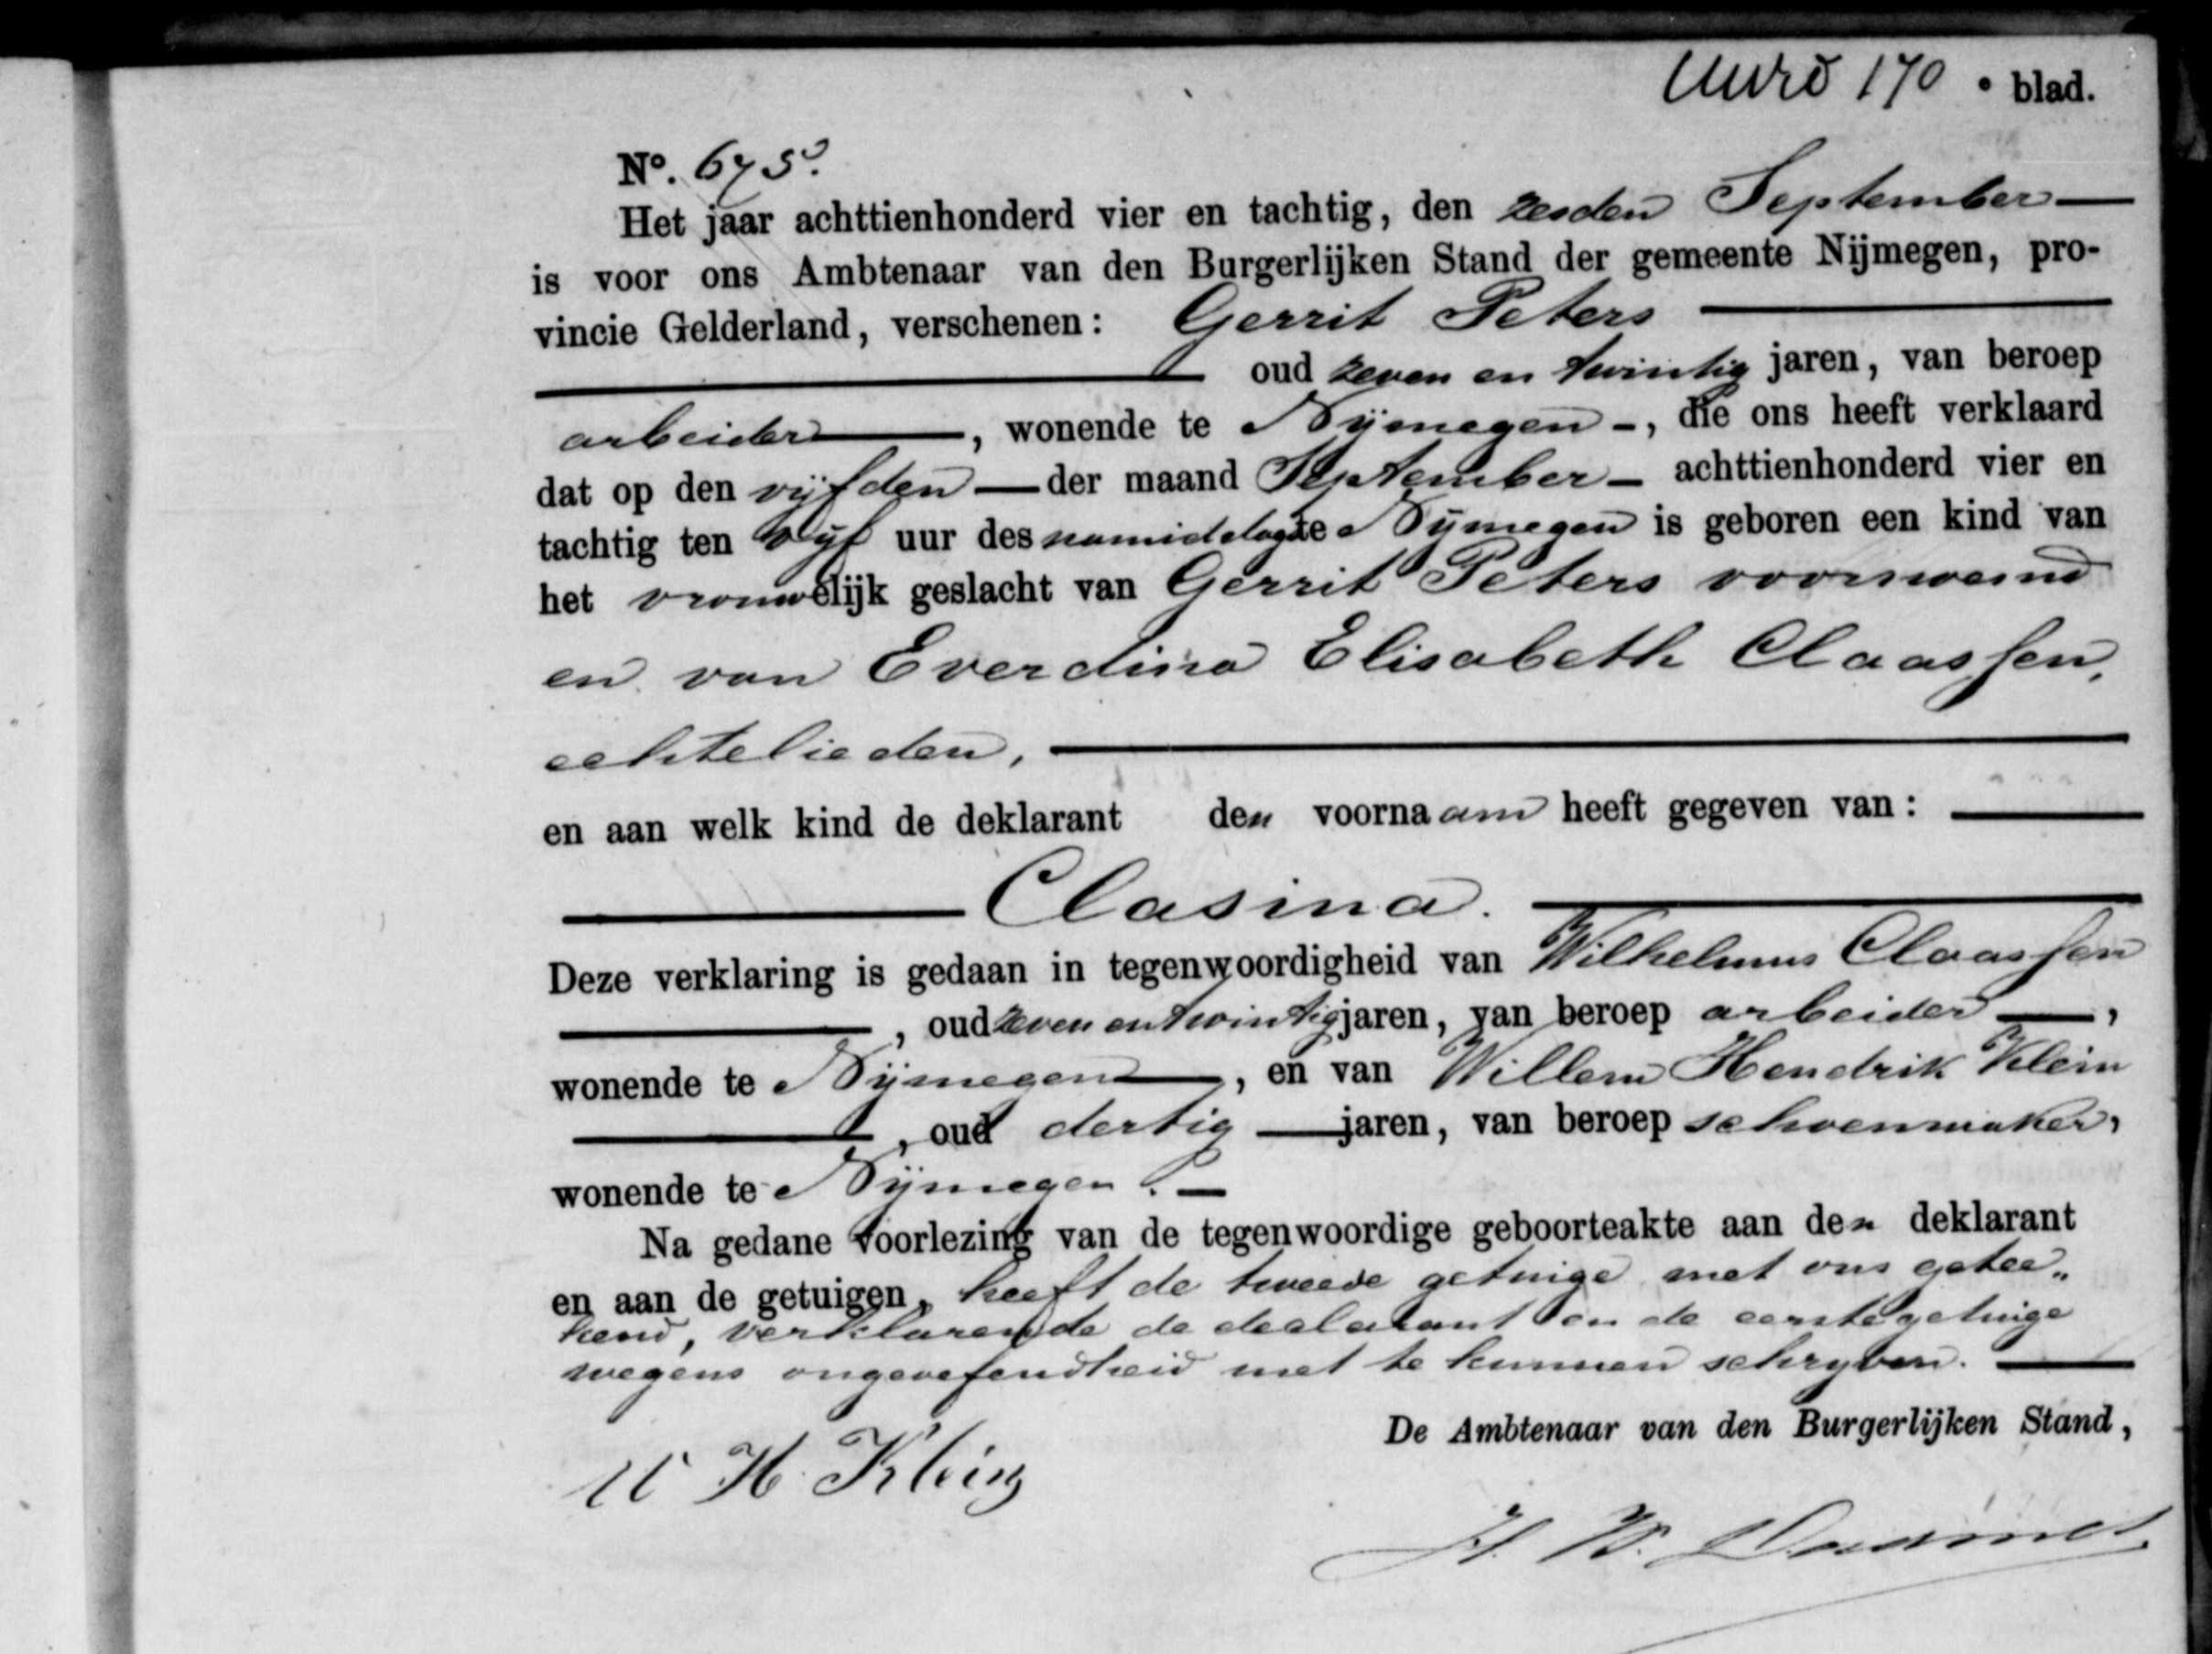 170 . blad.
Nº. 675.
Het jaar achttienhonderd vier en tachtig, den zesden September —
is voor ons Ambtenaar van den Burgerlijken Stand der gemeente Nijmegen, pro-
vincie Gelderland, verschenen: Gerrit Peters —
— oud zeven en twintig jaren, van beroep
arbeider —, wonende te Nijmegen -, die ons heeft verklaard
dat op den vijfden — der maand September — achttienhonderd vier en
tachtig ten vijf uur des namiddags te Nijmegen is geboren een kind van
het vrouwelijk geslacht van Gerrit Peters voornoemd
en van Everdina Elisabeth Claassen,
echtelieden, —
en aan welk kind de deklarant den voornaam heeft gegeven van: —
— Clasina. —
Deze verklaring is gedaan in tegenwoordigheid van Wilhelmus Claassen
—, oud zeven en twintig jaren, van beroep arbeider —,
wonende te Nijmegen —, en van Willem Hendrik Klein
—, oud dertig — jaren, van beroep schoenmaker,
wonende te Nijmegen. —
Na gedane voorlezing van de tegenwoordige geboorteakte aan den deklarant
en aan de getuigen, heeft de tweede getuige met ons getee„
kend, verklarende de declarant en de eerste getuige
wegens ongeoefendheid niet te kunnen schryven. —
De Ambtenaar van den Burgerlijken Stand,
W H Klein